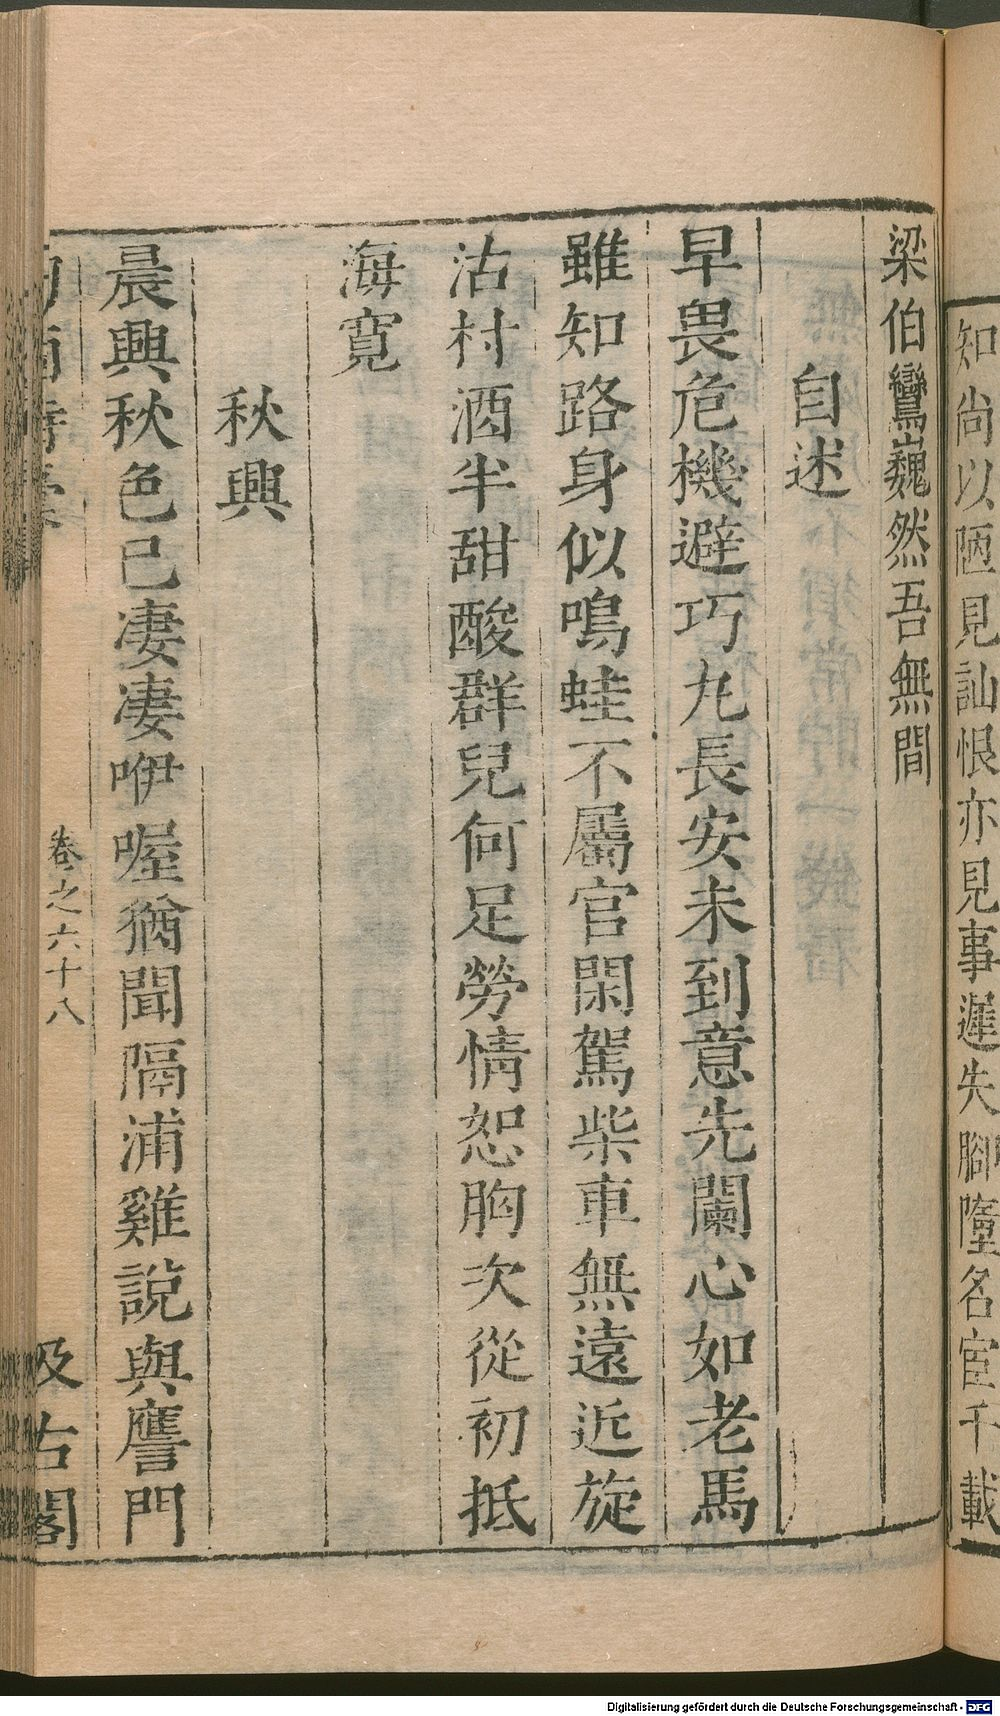 知尚以陋見訕恨亦見事遲失腳墮名宦千載
梁伯鸞巍然吾無間
自述
早畏危機避巧丸長安未到意先闌心如老馬
雖知路身似鳴蛙不屬官閑駕柴車無遠近旋
沽村酒半甜酸群兒何足勞情恕胸次從初抵
海寬
秋興
晨興秋色已凄凄咿喔猶聞隔浦雞說與譍門
卷之六十八
汲古閣
Digitalisierung gefördert durch die Deutsche Forschungsgemeinschaft - DFG